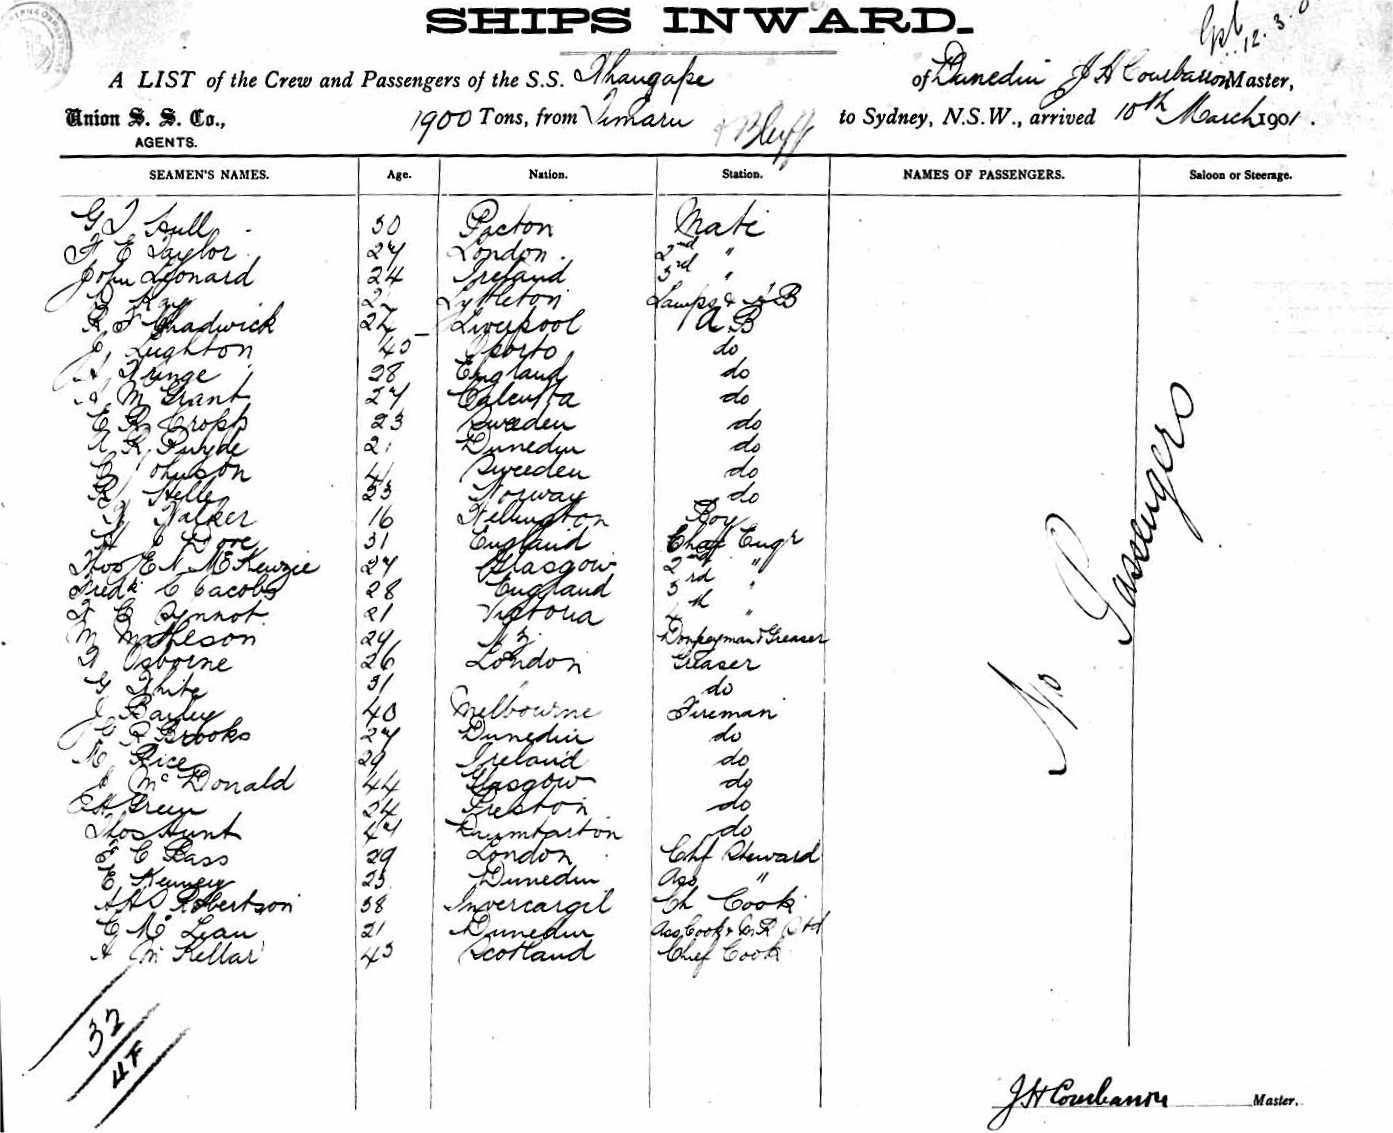 SHIPS INWARD.
12.3.0
A LIST of the Crew and Passengers of the S.S. Whangape of Dunedin J H Courbarron Master,
Union S. S. Co., 1900 Tons, from Timaru & Bluff to Sydney, N.S.W., arrived 10th March 1901.
AGENTS.
SEAMEN'S NAMES. Age. Nation. Station. NAMES OF PASSENGERS. Saloon or Steerage.
Hull 30 Mate
E Taylor 27 London 2nd "
John Leonard 24 Ireland 3rd "
Lyttleton Lamps & A B
R F Chadwick Liverpool A B
Leighton 45 Oporto do
28 England do
M Grant 27 Calcutta do
E R Cropp 23 Sweeden do
A R 21 Dunedin do
Johnson 41 Sweeden do
33 Norway do
Walker 16 Wellington Boy
H J Dore 31 England Chef Engr
Thos E N McKenzie 27 Glasgow 2nd "
Fredk C Jacobs 28 England 3rd "
C Synnot 21 Victoria 4th "
M Matheson N Z Donkeyman & Greaser
Osborne 26 London Greaser
G White 31 " do
J Bailey 40 Melbourne Fireman
R Brooks 27 Dunedin do
Rice 29 Ireland do
J McDonald 44 Glasgow do
Green 24 Preston do
Thos Hunt 47 Daumbarton do
E C Bass 29 London Chf Steward
E Dunedin Ass "
Robertson 38 Invercargil Ch Cook
C McLean 21 Dunedin Ass Cook &
A McKellar 45 Scotland Chief Cook
No Passengers
32
J H Courbarron Master.